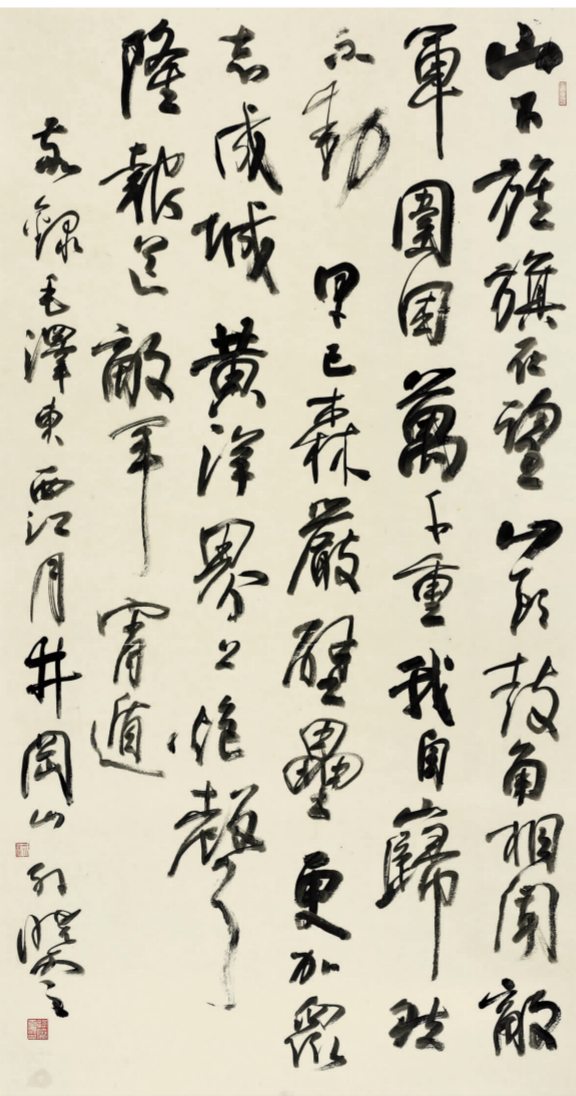 山下旌旗在望山頭鼓角相聞敵
軍圍困萬千重我自巋然
不動 早已森嚴壁壘更加眾
志成城黃洋界上炮聲
隆報道敵軍宵遁
錄毛澤東西江月井岡山